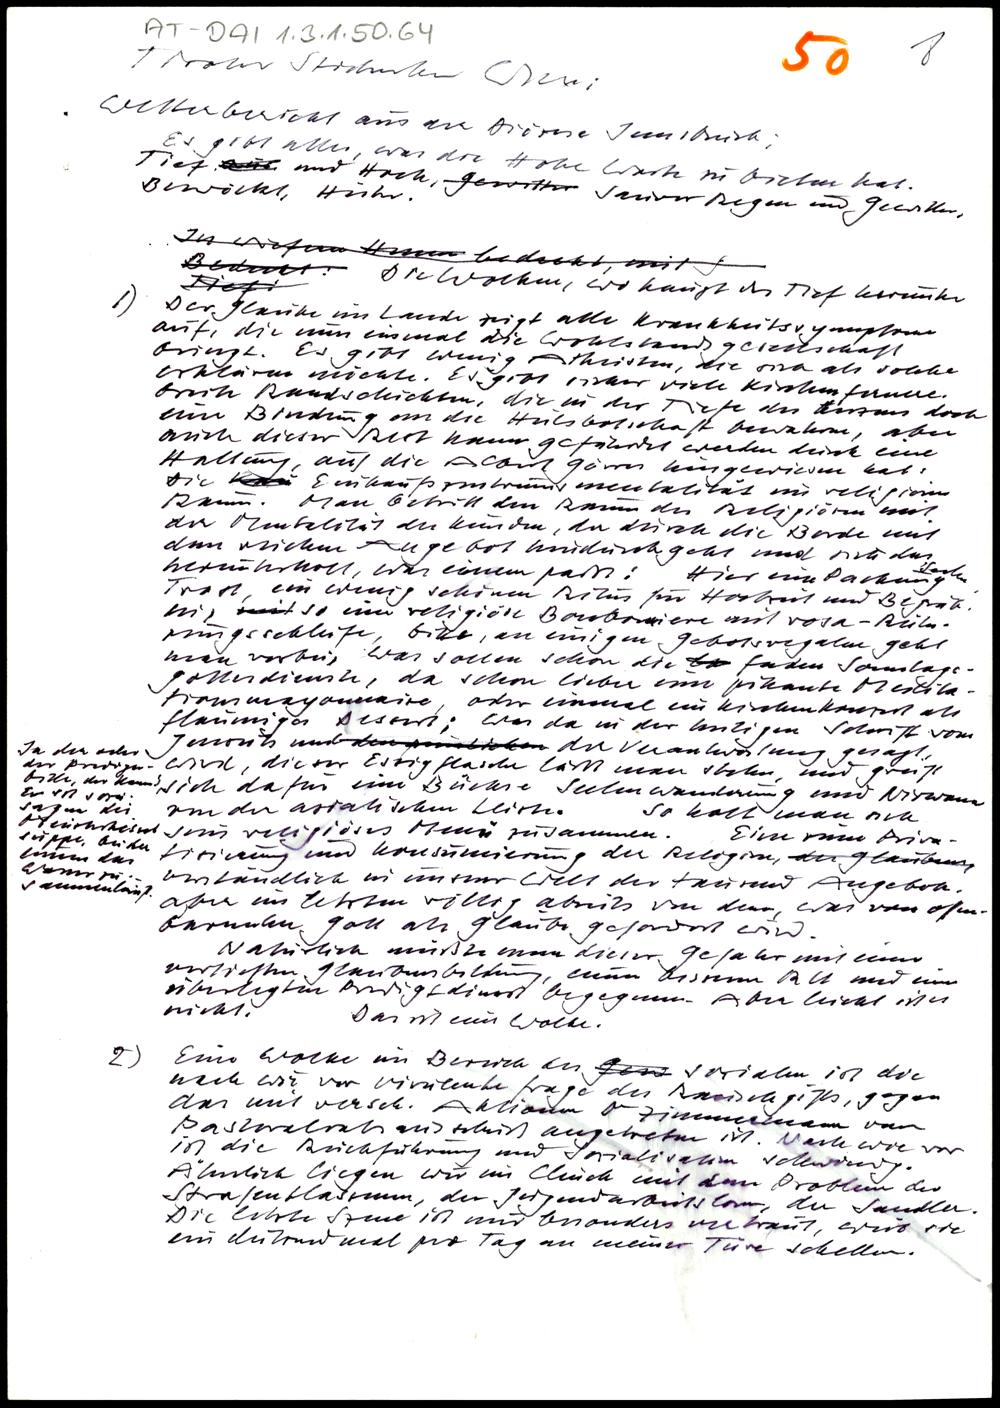 AT-DAI 1.3.1.50.64
50
Tiroler Wien:
Wetterbericht aus der Diözese Innsbruck:
Es gibt alles, was die Hohe Warte zu bieten hat.
Tief und Hoch, Gewitter Saurer Regen und Gewitter,
Bewölkt, Heiter.
In wiefern bedeckt, mit
Bedeckt: Die Wolken, wo hängt das Tief herunter
Tief:
1) Der Glaube im Lande zeigt alle Krankheitssymptome
auf, die nun einmal die Wohlstandsgesellschaft
bringt. Es gibt wenig Atheisten, die sich als solche
erklären möchte. Es gibt sicher viele Kirchenfernere.
breite Randschichten, die in der Tiefe des Herzens doch
eine Bindung an die Heilsbotschaft bewahren, aber
auch dieser Rest kann gefährdet werden durch eine
Haltung, auf die Albert Görres hingewiesen hat:
Die Einkaufszentrumsmentalität im religiösen
Raum. Man betritt den Raum des Religiösen mit
der Mentalität des Kunden, der durch die Borde mit
dem reichen Angebot hindurchgeht und sich das
herunterholt, was einem passt: Hier eine Packung
Trost, ein wenig schönen Ritus für Hochzeit und Begräb-
nis, so eine religiöse Bonboniere mit rosa-Rüh-
rungsschleife, bitte, an einigen Gebotsregalen geht
man vorbei, was sollen schon die faden Sonntags-
gottesdienste, da schon lieber eine pikante Medita-
tionsmayonnaise, oder einmal ein Kirchenkonzert als
flaumiges Dessert; was da in der heiligen Schrift vom
Jenseits und der Verantwortung gesagt,
wird, diese Essigflasche läßt man stehen, und greift
sich dafür eine Büchse Seelenwanderung und Nirwana
von der asiatischen Leiste. So holt man sich
sein religiöses Menü zusammen. Eine Priva-
tisierung und Konsumierung der Religion,
verständlich in unserer Welt der tausend Angebote.
aber im letzten völlig abseits von dem, was vom offen-
barenden Gott als Glaube gefordert wird.
In der oder
der Prediger-
Er ist
sagen die
suppe, bei der
einem das
Wasser zu-
sammenläuft.
Natürlich müßte man dieser Gefahr mit einer
vertieften Glaubensbildung, einem besseren RU und einem
überlegten Predigtdienst begegnen. Aber leicht ist es
nicht. Das ist eine Wolke.
2) Eine Wolke im Bereich des sozialen ist die
nach wie vor virulente Frage des Rauschgifts, gegen
das mit versch. Aktionen Dr Zimmermann vom
Pastoralratsausschuß angetreten ist. Nach wie vor
ist die Rückführung und Sozialisation schwierig.
Ähnlich liegen wir im Clinch mit dem Problem der
Strafentlassenen, der Jugendarbeitslosen, der Sandler.
Die letzte Szene ist mir besonders vertraut, weil sie
ein dutzendmal pro Tag an meiner Türe schellen.